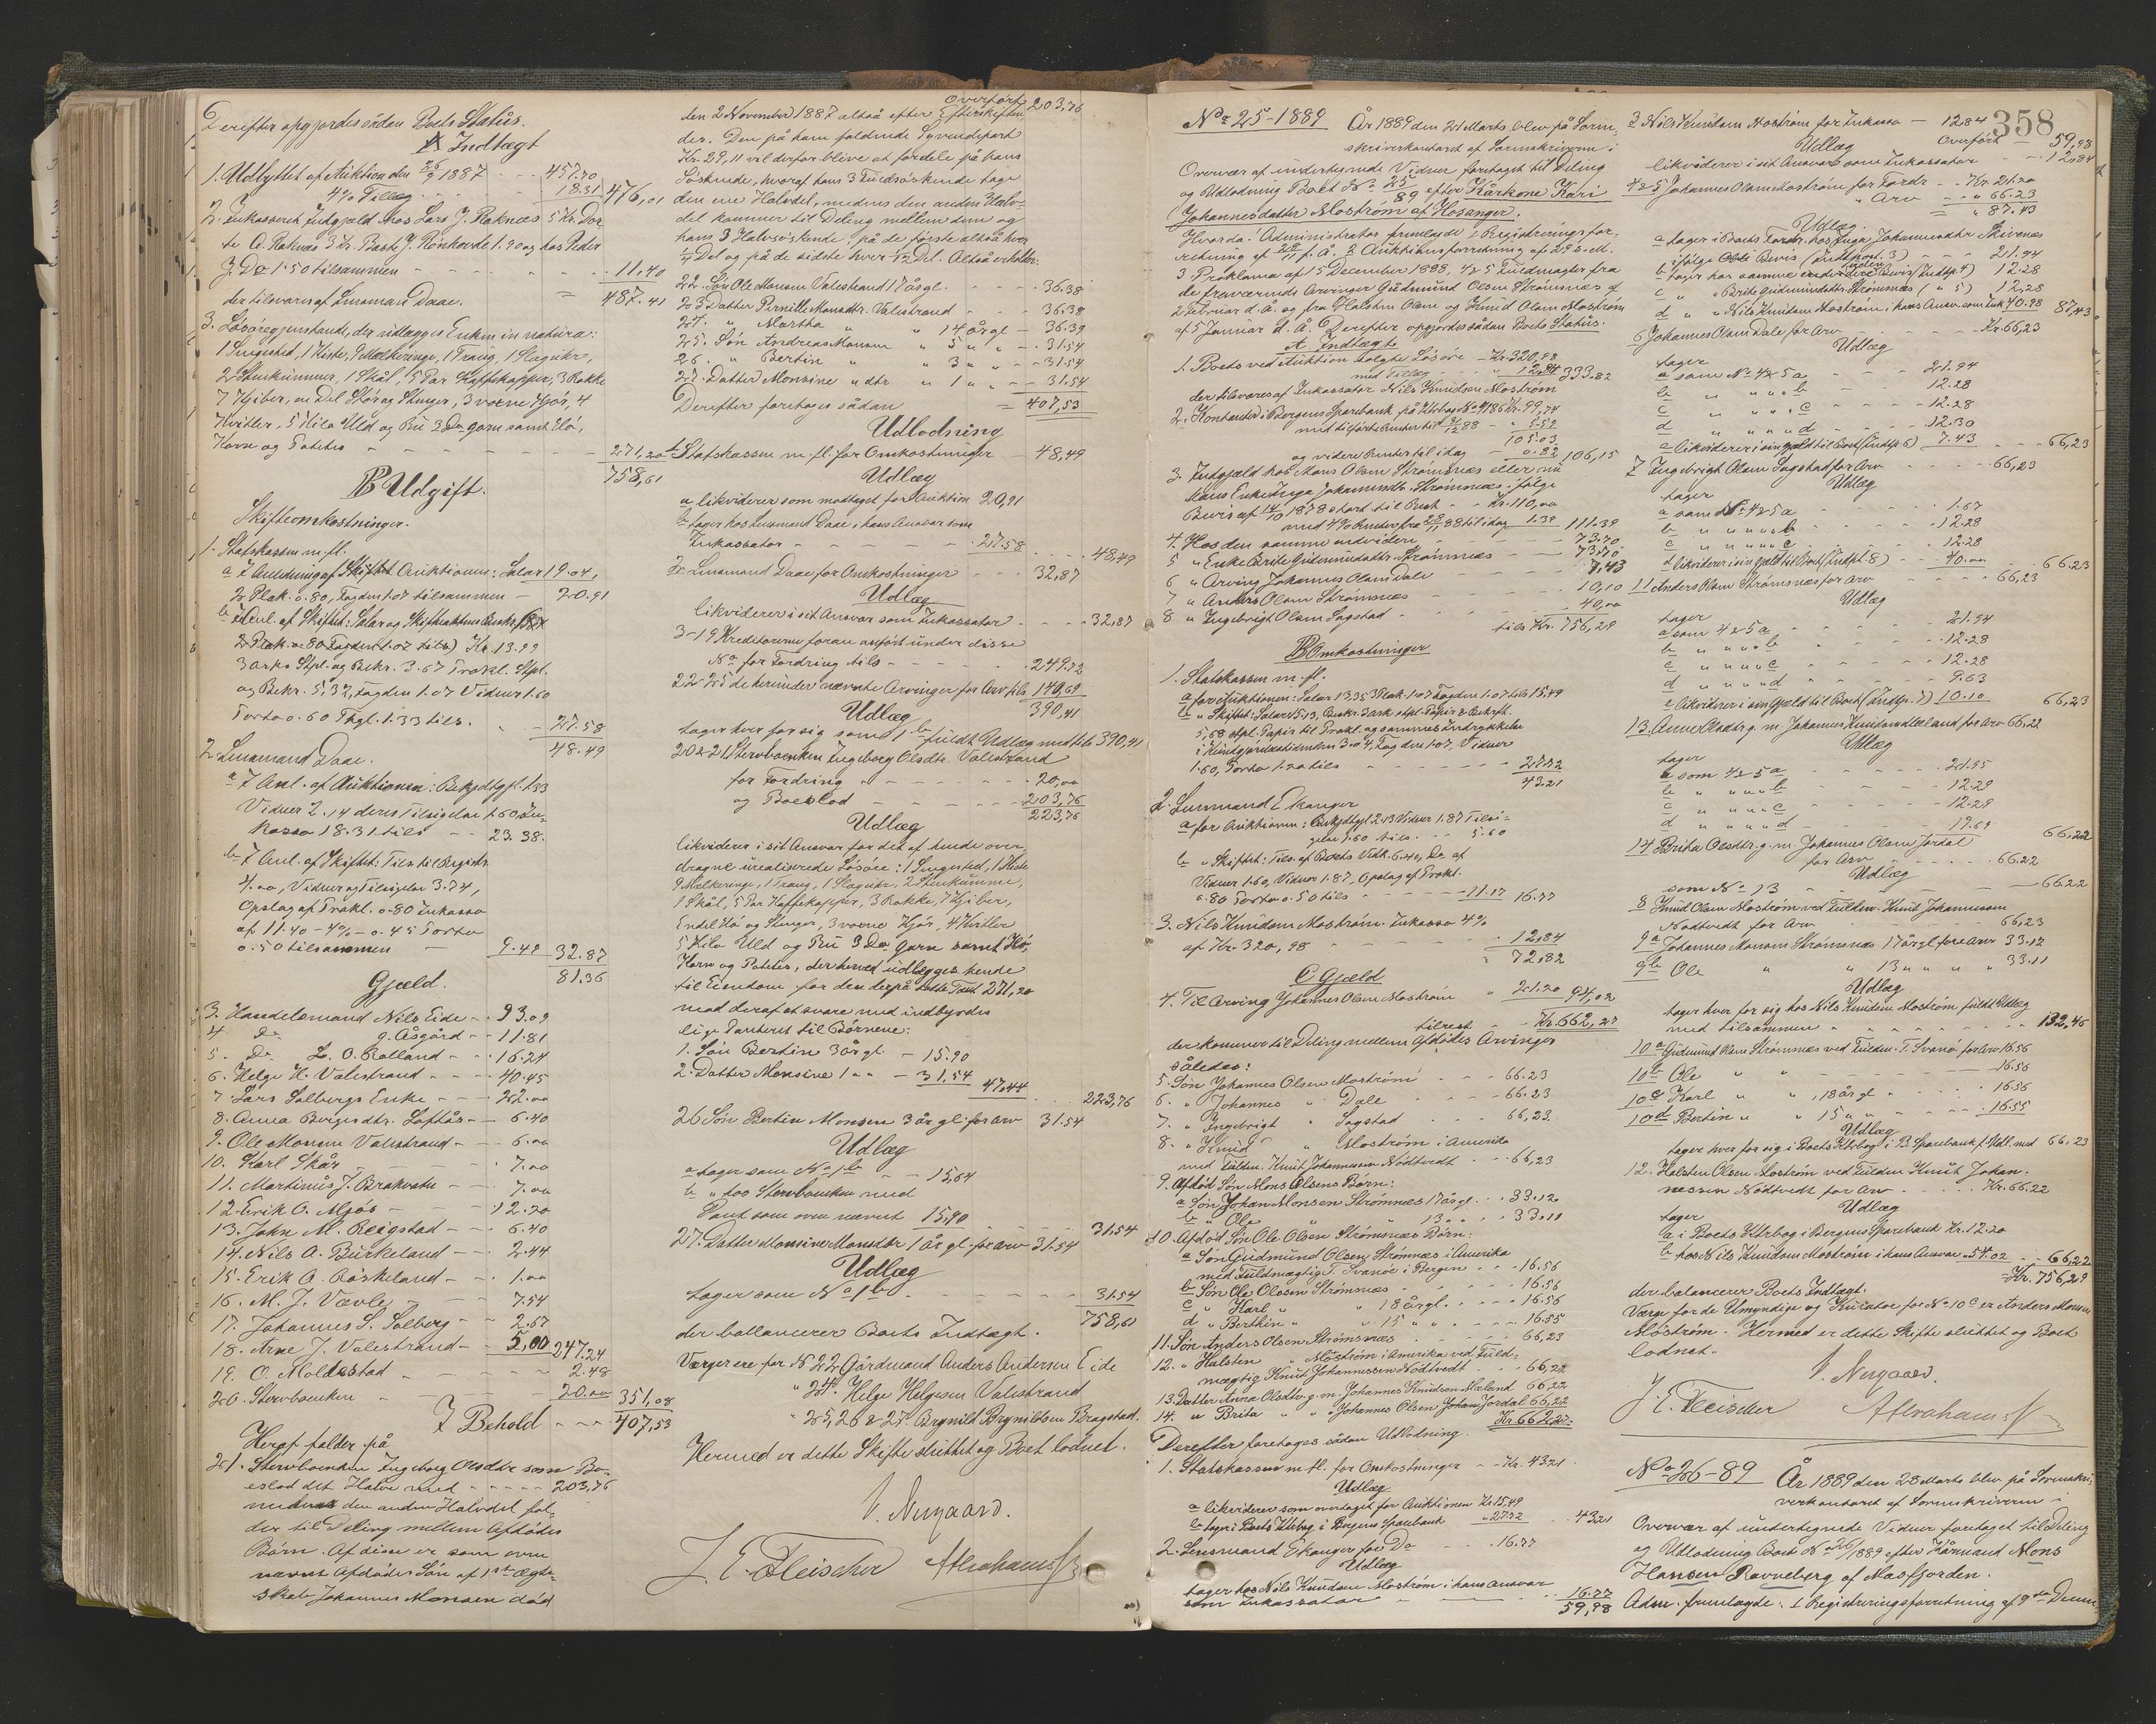 Derefter opgjordes sådan Boets Status.
A Indtægt
1. Udbyttet af Auktion den 26/9 1887 - - 457.70
4% Tillæg - - 18.31 476,01
2. Inkasseret Indgjæld hos Lars J. Raknæs 5 Kr. Dor-
te A. Raknæs 3 Kr. 1.90 og hos Peder
J. Do 1.50 tilsammen - - 11.40
der tilsvares af Lensmand Daae. = 487.41
3. Løsøregjenstande, der udlægges Enken in natura:
1 Sengested, 1 Kiste, 9 Melkeringe, 1 Traug, 1 Slagukre,
2 Stenkummer, 1 Skål, 5 Par Kaffekopper, 3 Rokke
7 Kjiber, en Del Stør og Stenger, 3 voxne Kjør, 4
Kvitler, 5 Kilo Uld og Bu 3 Do garn samt Hø,
Korn og Potetes - - 271,20
758,61
B Udgift.
Skifteomkostninger.
1. Statskassen m. fl.
a I Anledning af Auktionen: Salar 19.04,
2 Plak. 0.80, Fogden 1.07 tilsammen - 20.91
b I Anl. af Skiftet: Salar og
2 Plak. 0.80 Fogden 1.07 tils) Kr. 13.99
3 arks Stpl. og Bekr. 3.67 Prokl. Stpl.
og Bekr. 5.32, Fogden 1.07 Vidner 1.60
Porto 0.60 Thgl. 1.33 tils. - 27.58
48.49
2. Lensmand Daae.
a I Anl. af Auktionen: Bekjdtgjf. 1.33
Vidner 2.14 deres Tilsigelse 1.60, In-
kasso 18.31 tils - - 23.38.
b I Anl. af Skiftet: Tils. til Registr.
4.00, Vidner og Tilsigelse 3.74,
Opslag af Prokl. 0.80 Inkasso
af 11.40 - 4% - 0.45 Porto
0.50 tilsammen - 9.49 32.87
81.36
Gjæld.
3. Handelsmand Nils Eide - - 93.09
4 Do G. Åsgård - - 11.81
5. Do L. O. Rolland - - 16.24
6. Helge H. Valestrand - - 40.45
7 Lars Solbergs Enke - - 22.00
8. Anna Børgesdtr. Loftås - - 6.40
9. Ole Monsen Valestrand - - 6.00
10. Karl Skår - - 7.00
11. Martinus J. Brakvatn - - 7.00
12. Erik O. Mjøs - - 12.20
13. John M. Reigstad - - 6.40
14. Nils A. Birkeland - - 2.44
15. Erik A. Røskeland - - 1.00
16. M. J. Vavle - - 7.54
17. Johannes L. Solberg - - 2.67
18. Arne J. Valestrand - - 5,00 247.24
19. O. Moldestad - - 2.48
20. Stervboenken - - 20.00 351,08
I Behold - - 407,53
Heraf falder på
21. Stervboenken Ingeborg Olsdtr som Bo-
eslod det Halve med - - 203,76
medens den anden Halvdel fal-
der til Deling mellem Afdødes
Børn. Af disse er som oven
nævnt Afdødes Søn af 1ste Ægte-
skab Johannes Monsen død
Overført 203,76
den 2 November 1887 altså efter Efterskiften
der. Den på ham faldende Syvendepart
Kr. 29,11 vil derfor blive at fordele på hans
Søskende, hvoraf hans 3 Fuldsøskende tage
den ene Halvdel, medens den anden Halv-
del kommer til Deling mellem dem og
hans 3 Halvsøskende, på de første altså hver
1/4 Del og på de sidste hver 1/12 Del. Altså erholder:
22. Søn Ole Monsen Valestrand 17 årgl. - - 36.38
23. Datter Pernille Monsdtr. Valestrand - - 36.38
24. " Martha " " 14 årgl - 36.39
25. Søn Andreas Monsen " 5 " " - 31.54
26. " Bertin " " 3 " " - 31.54
27. Datter Monsine " dtr " 1 " " - - 31.54
Derefter foretoges sådan = 407,53
Udlodning
1. Statskassen m. fl. for Omkostninger - 48,49
Udlæg
a likviderer som modtaget for Auktion 20,91
b tager hos Lensmand Daae i hans Ansvar som
Inkassator - - 27.58 - - 48,49
2. Lensmand Daae for Omkostninger - - 32,87
Udlæg
likviderer i sit Ansvar som Inkassator - - 32,87
3-19 Kreditorerne foran anført under disse
No for Fordring tils - - 249.72
22-25 de herunder nævnte Arvinger for Arv tils 140,69
390,41
Udlæg
tager hver for sig som 1 b fuldt Udlæg med tils 390,41
20 & 21 Stervboenken Ingeborg Olsdtr. Valestrand
for Fordring - - 20,00
og Boeslod - - 203,76
223,76
Udlæg
likviderer i sit Ansvar for det af hende over
dragne urealiserede Løsøre: 1 Sengested, 1 Kiste
9 Melkeringe, 1 Traug, 1 Slagukre, 2 Stenkumme,
1 Skål, 5 Par Kaffekopper, 3 Rokke, 7 Kjiber,
En del Hø og Stenger, 3 voxne Kjør, 4 Kvitler
5 Kilo Uld og Bu 3 Do garn samt Hø,
Korn og Potetes, der herved udlægges hende
til Eiendom for den derpå satte Taxt 271,20
mod deraf at svare med indbyrdes
lige Panteret til Børnene:
1. Søn Bertin 3 årgl. - 15.90
2. Datter Monsine 1 " " - 31,54
47,44 - - 223,76
26 Søn Bertin Monsen 3 årgl. for Arv 31.54
Udlæg
a tager som No 1 b - - 15,64
b " hos Stervboenken med
Pant som oven nævnt 15,90 - - 31.54
27. Datter Monsine Monsdtr 1 år gl. for Arv 31.54
Udlæg
tager som No 1 b - - 31.54
758,61
der ballancerer Boets Indtægt.
Værger ere for No 22 Gårdmand Anders Andersen Eide
" 24. Helge Helgesen Valestrand
" 25, 26 & 27. Brynild Brynildsen Bragstad.
Hermed er dette Skifte sluttet og Boet lodnet.
V. Nergaard.
J. E. Fleischer
No 25-1889 År 1889 den 21 Marts blev på Soren-
skriverkontoret af Sorenskriveren i
Overvær af undertegnede Vidner foretaget til Deling
og Udlodning Boet No 25/89 efter Kårkone Kari
Johannesdatter Mostrøm af Hosanger.
Hvorda: Administrator fremlagde 1 Registreringsfor-
retning af 28/11 f. Å. 2 Auktionsforretning af 29 s. M.
3 Proklama af 15 December 1888, 4 & 5 Fuldmagter fra
de fraværende Arvinger Gudmund Olsen Strømsnæs af
2 Februar d. A. og fra Halsten Olsen og Knud Olsen Mostrøm
af 5 Januar d. Å. Derefter opgjordes sådan Boets Status.
A. Indtægt
1. Boets ved Auktion solgte Løsøre - Kr. 320,98
med Tillæg - - 12,84 333.82
der tilsvares af Inkassator Nils Knudsen Mostrøm
2. Kontanter i Bergens Sparebank på Ktrbog No Kr. 99,74
med tilførte Renter til 88 - " 5.59
105.03
og videre Renter til idag - 0.82 106,15
3. Indgjæld hos Mons Olsen Strømsnæs eller nu
hans Enke Inga Johannesdtr. Strømsnæs ifølge
Bevis af 14/10 1878 stort til Rest - Kr. 110,00
med 4% Renter fra 28/11 88 til idag 1.39 111.39
4. Hos den samme endvidere - - 73.70
5 " Enke Brite Gudmundsdtr. Strømsnæs - - 73.70
6 " Arving Johannes Olsen Dale - - 7,43
7 " Anders Olsen Strømsnæs - - 10,10
8 " Ingebrigt Olsen Sagstad - - 40,00
tils Kr. 756,29
B Omkostninger
1. Statskassen m. fl.
a for Auktionen: Salar 13.35 3 Plak. 1.07 Fogden 1.07 tils 15.49
b " Skiftet: Salar 15.13, Bekr. 3 ark stpl. Papir & Bekrft.
5,68 stpl. Papir til Prokl. og sammes Indrykkelse
i Kundgjørelsestidenden 3.04, Fogden 1.07, Vidner
1.60, Porto 1.20 tils - - 27.72
43.21
2. Lensmand Ekanger
a for Auktionen: Bekjdtgj 2.13 Vidner 1.87 Tilsi-
gelse 1.60 tils. - - 5.60
b " Skiftet: Tils. af Boets Vedk. 6.40, Do af
Vidner 1.60, Vidner 1.87, Opslag af Prokl.
0.80 Porto 0.50 tils - - 11.17 16.77
3. Nils Knudsen Mostrøm. Inkasso 4%
af Kr. 320,98 - - 12,84
= 72,82
C Gjæld
4. Til Arving Johannes Olsen Mostrøm " 21.20 94,02
tilrest - - Kr. 662,27
der kommer til Deling mellem Afdødes Arvinger
således:
5. Søn Johannes Olsen Mostrøm - - 66.23
6. " Johannes " Dale - - 66.23
7. " Ingebrigt " Sagstad - - 66,23
8. " Knud " Mostrøm i Amerika
med Fuldm. Knut Johannessen Nødtvedt - - 66,23
9. Afdød Søn Mons Olsens Børn:
a Søn Johan Monsen Strømsnæs 17 årgl. - - 33.12
b " Ole " " 13 " " - - 33.11
10. Afdød Søn Ole Olsen Strømsnæs Børn:
a Søn Gudmund Olsen Strømsnæs i Amerika
med Fuldmægtig T. Svanøe i Bergen - - 16.56
b Søn Ole Olssen Strømsnæs - - 16.56
c " Karl " " 18 årgl. - - 16.56
d " Berthin " " 15 " " - - 16.55
11. Søn Anders Olsen Strømsnæs - - 66,23
12. " Halsten " Mostrøm i Amerika ved Fuld-
mægtig Knut Johannessen Nødtvedt - - 66,22
13. Datter Anna Olsdtr. g. m. Johannes Knudsen Mæland 66,22
14. " Brita " " " Johannes Olsen Johan Jordal 66,22
Kr. 662,27.
Derefter foretoges sådan Udlodning.
1. Statskassen m. fl. for Omkostninger - - Kr. 43.21
Udlæg
a likviderer som overtaget for Auktionen Kr. 15,49
b tager i Boets Ktrbog i Bergens Sparebank " 27.72 - - 43,21
2. Lensmand Ekanger for Do - - 16.77
Udlæg
tager hos Nils Knudsen Mostrøm i hans Ansvar
som Inkassator - - 16.77
59,98
358
3 Nils Knudsen Mostrøm for Inkasso - 12.84
Overført - 59,98
Udlæg
likviderer i sit Ansvar som Inkassator - - 12,84
4 & 5 Johannes Olsen Mostrøm for Fordr. - - Kr. 21.20
" Arv - - " 66.23
= " 87.43
Udlæg.
a tager i Boets Fordr. hos Inga Johannesdtr Strømsnæs
ifølge Obli Bevis (Indtpost. 3) - - 21.94
b tager hos samme uden Bevis (Indtp. 4) 12.28
c " " Brite Gudmundsdtr. Strømsnæs ( " 5) 12,28
d " " Nils Knudsen Mostrøm i hans Ansv. som Ink 40.93 87,43
6 Johannes Olsen Dale for Arv - - Kr. 66,23
Udlæg
tager
a som No 4 & 5 a - - 21.94
b " " " " b - - 12.28
c " " " " c - - 12.28
d " " " " d - - 12.30
e likviderer i sin Gjæld til Boet (Indtp. 6) 7.43 - - 66,23
7 Ingebrigt Olsen Sagstad for Arv - - 66,23
Udlæg
tager
a som No 4 & 5 a - - 1.67
b " " " " b - - 12.28
c " " " " c - - 12.28
d likviderer i sin Gjæld til Boet (Indtp. 8) - 40.00 66.23
11 Anders Olsen Strømsnæs for Arv - - 66,23
Udlæg
tager
a som 4 & 5 a - - 21.94
b " " " " b - - 12.28
c " " " " c - - 12.28
d " " " " d - - 9.63
e likviderer i sin Gjæld til Boet (Indtp. 7) 10.10 66,23
13. Anna Olsdtr. g. m. Johannes Knudsen Mæland for Arv 66.22
Udlæg
tager
a som 4 & 5 a - - 21.95
b " " " " b - - 12.29
c " " " " c - - 12.29
d " " " " d - - 19.69 66.22
14. Brita Olesdtr. g. m. Johannes Olsen Jordal
for Arv - - 66.22
Udlæg
som No 13 - - 66.22
8 Knud Olsen Mostrøm ved Fuldm. Knut Johannessen
Nødtvedt for Arv - - 66,23
9 a Johannes Monsen Strømsnæs 17 årgl. for Arv 33.12
9 b Ole " " 13 " " " " 33.11
Udlæg
tager hver for sig hos Nils Knudsen Mostrøm fuldt Udlæg
med tilsammen - - 132,46
10 a Gudmund Olsen Strømsnæs ved Fuldm. T. Svanø for Arv 16.56
10 b Ole " " - - 16.56
10 c Karl " " , 18 årgl - - 16.56
10 d Bertin " " 15 " " - - 16.55
Udlæg
tager hver for sig i Boets Ktrbog i B. Sparebank f. Udl. med 66.23
12. Halsten Olsen Mostrøm ved Fuldm Knut Johan-
nessen Nødtvedt for Arv - - Kr. 66.22
Udlæg
tager
a i Boets Ktrbog i Bergens Sparebank Kr. 12.20
b hos Nils Knudsen Mostrøm i hans Ansvar " 54.02 - - 66,22
Kr. 756,29
der balancerer Boets Indtægt.
Værge for de Umyndige og Kurator for No 10 c er Anders Monsen
Mostrøm. Hermed er dette Skifte sluttet og Boet
lodnet.
V. Nergaard.
J. E. Fleischer
No 26-89 År 1889 den 28 Marts blev på Sorenskri-
verkontoret af Sorenskriveren i
Overvær af undertegnede Vidner foretaget til Deling
og Udlodning Boet No 26/1889 efter Kårmand Mons
Hansen Ravneberg af Masfjorden.
Adm. fremlagde: 1 Registreringsforretning af 9de Decem